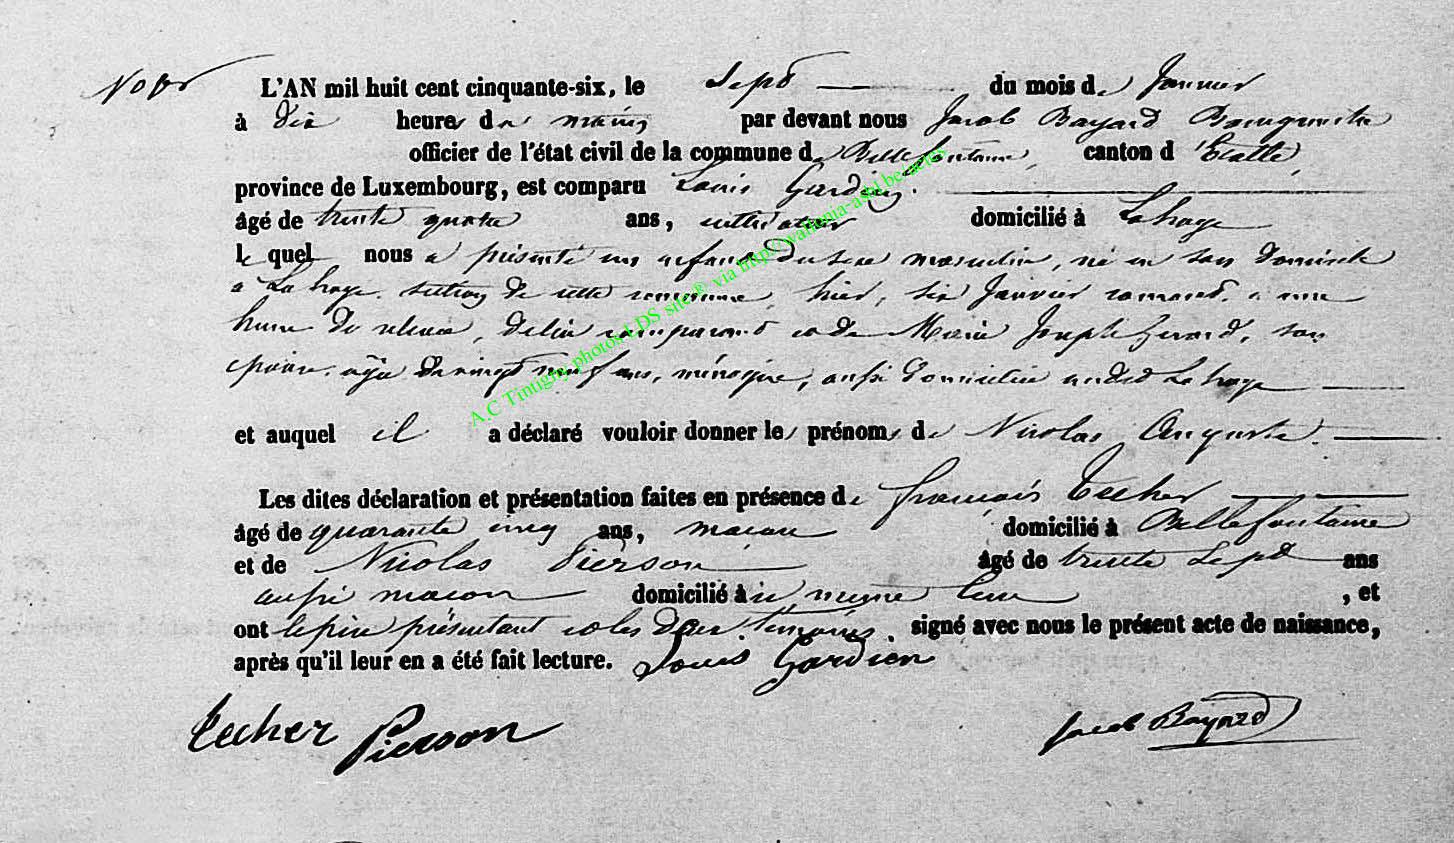 L'AN mil huit cent cinquante-six, le sept du mois de Janvier
à dix heures du matin par devant nous Jacob Bayard Bourgmestre
officier de l'état civil de la commune de Bellefontaine, canton d'Etalle,
province de Luxembourg, est comparu Louis Gardien.
âgé de trente quatre ans, cultivateur domicilié à Lahage
lequel nous a présenté un enfant du sexe masculin, né en son domicile
à Lahage section de cette commune, hier, six Janvier courant, à une
heure de relevée, de lui comparant et de Marie Joseph Gerard, son
épouse, agée de vingt neuf ans, ménagère, aussi domiciliée audit Lahage
et auquel il a déclaré vouloir donner les prénoms de Nicolas Auguste.
Les dites déclaration et présentation faites en présence de françois Techer
âgé de quarante cinq ans, macon domicilié à Bellefontaine
et de Nicolas Pierson âgé de trente sept ans
aussi macon domicilié à même lieu, et
ont le père présentant et les deux témoins signé avec nous le présent acte de naissance,
après qu'il leur en a été fait lecture. Louis Gardien
Techer Pierson Jacob Bayard
A.C Tintigny photos LDS site® via http://wallonia-asbl.be/actes